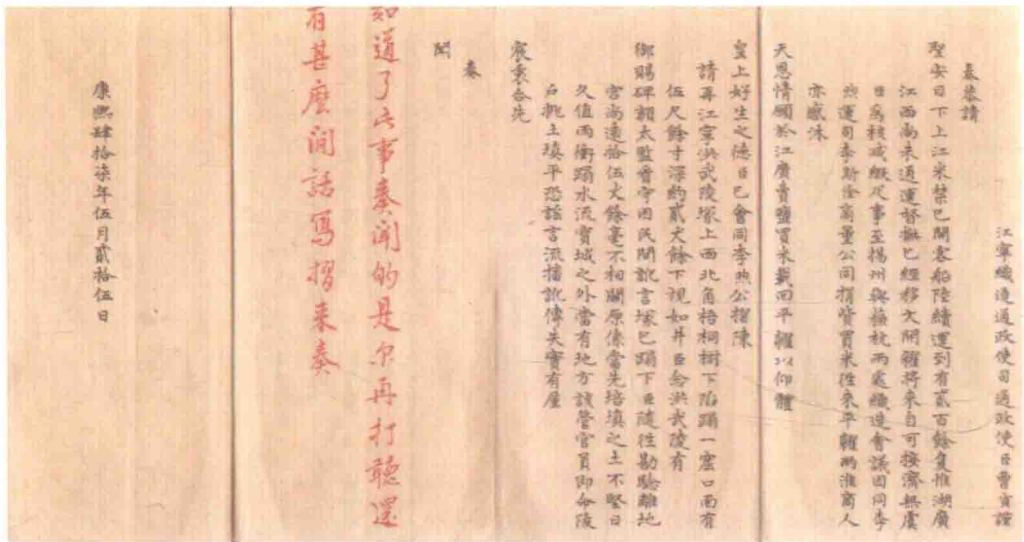 江寧織造通政使司通政使臣曹寅謹
奏恭請
聖安日下上江米禁已開客船陸續運到有貳百餘隻惟湖廣
江西尚未通運督撫已經移文開糴將來自可接濟無虞
臣為核減緞疋事至揚州與蘇杭兩處織造會議因同李
煦運司李斯佺商量公同捐貲買米往來平糶兩淮商人
亦感沐
天恩情願於江廣賣鹽買米載回平糶以仰體
皇上好生之德臣已會同李煦公摺陳
請再江寧洪武陵塚上西北角梧桐樹下陷蹋一窟口面有
伍尺餘寸深約貳丈餘下視如井臣念洪武陵有
御賜碑額太監看守因民間訛言塚已蹋下臣隨往勘驗離地
宮尚遠拾伍丈餘毫不相關原係當先培填之土不堅日
久值雨衝蹋水流實城之外當有地方該管官員即命陵
戶挑土填平恐謠言流播訛傳失實有屋
宸衷合先
奏
聞
知道了此事奏聞的是尔再打聽還
有甚麼閒話寫摺來奏
康熙肆拾柒年伍月貳拾伍日